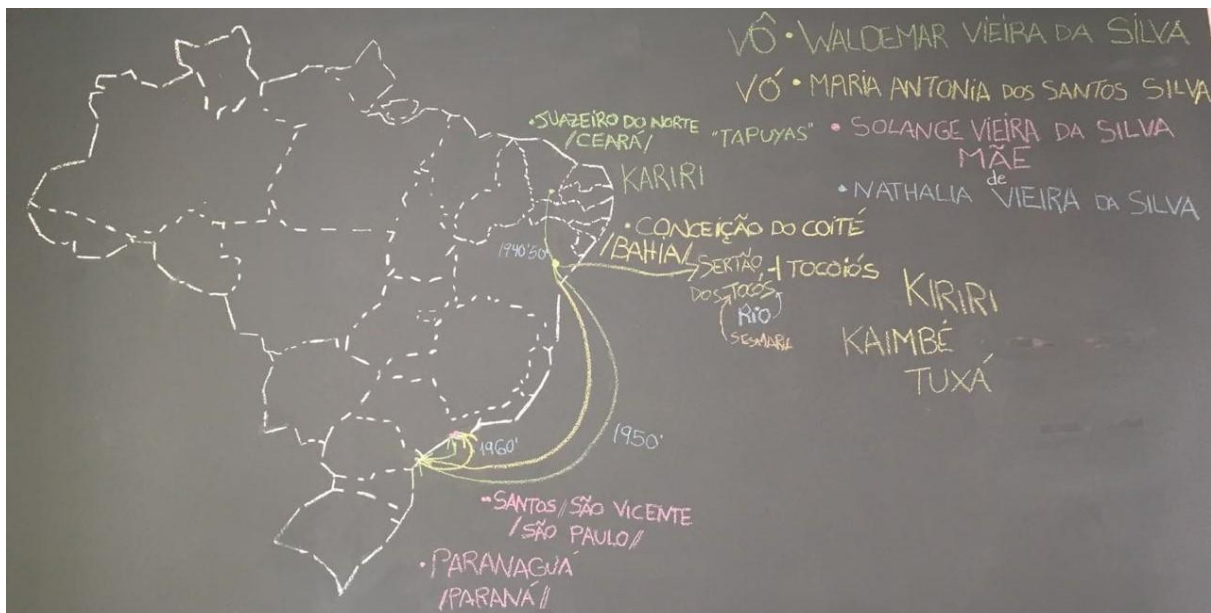 VÔ • WALDEMAR VIEIRA DA SILVA
VÓ • MARIA ANTONIA DOS SANTOS SILVA
• SOLANGE VIEIRA DA SILVA
MÃE
de
• NATHALIA VIEIRA DA SILVA
• JUAZEIRO DO NORTE
/CEARÁ/
"TAPUYAS"
KARIRI
• CONCEIÇÃO DO COITÉ
/BAHIA/
1940'50'
SERTÃO
DOS TOCÓS
TOCOIÓS
RIO
SESMARIA
KIRIRI
KAIMBÉ
TUXÁ
1950'
1960'
• SANTOS // SÃO VICENTE
/SÃO PAULO//
• PARANAGUÁ
/PARANÁ//